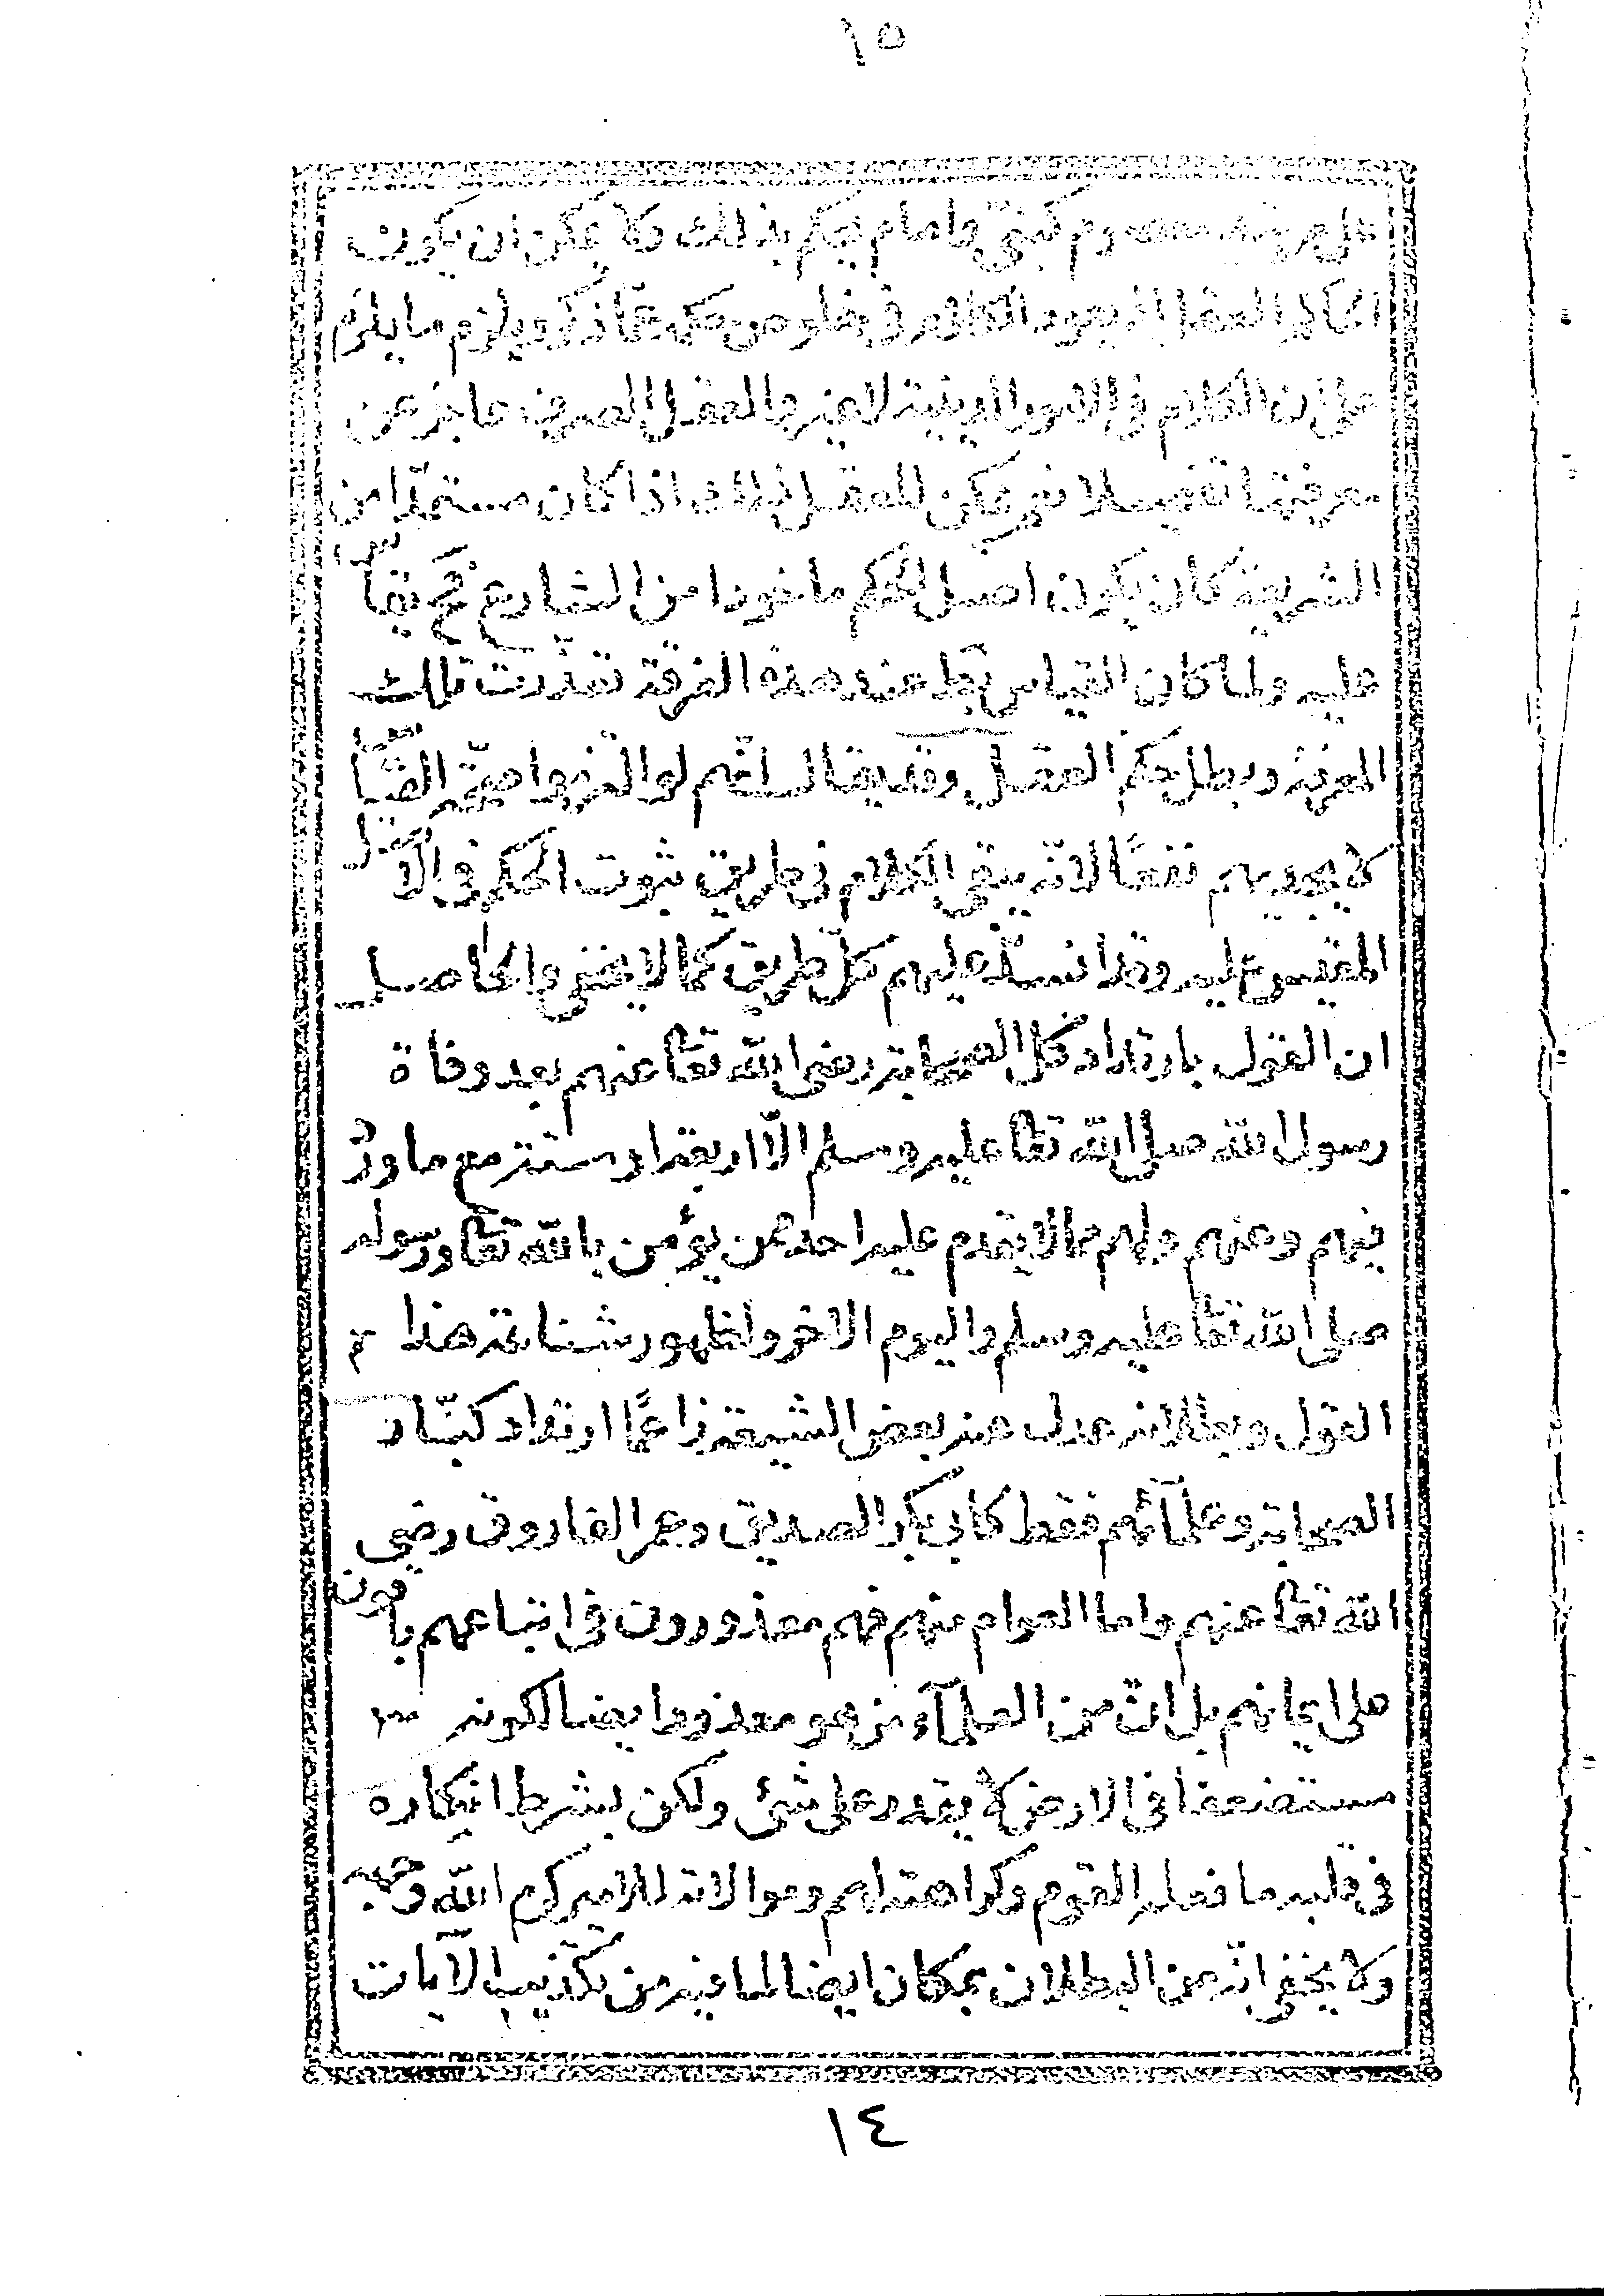 ١٥
كنبى وامام يحكم بذلك ولا يمكن ان يكون
الحاكم العقل اذ يعود الكلام فى خلوص حكمه عما ذكر ويلزم ما يلزم
على ان الكلام فى الامور الدينية لا غير والعقل الصرف عاجز عن
معرفتها تفصيلا نعم يمكن للعقل ذلك اذا كان مستمدّا من
الشريعة كان يكون اصل الحكم ماخوذا من الشارع
عليه ولما كان القياس باطلا عند هذه الفرقة تعذّرت تلك
المعرفة وبطل حكم العقل وقد يقال انهم لو التزموا صحّة القيا
لا يجديهم نفعًا لانّه يبقى الكلام فى طريق ثبوت الحكم فى الاصل
المقيس عليه وقد انسدّ عليهم كلّ طريق كما لا يخفى والحاصل
ان القول بارتداد كل الصحابة رضى الله تعالى عنهم بعد وفاة
رسول الله صلى الله تعالى عليه وسلم الّا اربعة او ستة مع ما ورد
فيهم وعنهم ولهم مما لا يقدم عليه احد ممن يؤمن بالله تعالى ورسوله
صلى الله تعالى عليه وسلم واليوم الاخر ولظهور شناعة هذا
القول وبطلانه عدل عنه بعض الشيعة زاعمًا ارتداد كبّار
الصحابة وعلمآئهم فقط كابى بكر الصديق وعمر الفاروق رضى
الله تعالى عنهم واما العوام منهم فهم معذورون فى اتباعهم باقون
على ايمانهم بل ان من العلمآء من هو معذور ايضا لكونه
مستضعفا فى الارض لا يقدر على شئ ولكن بشرط انكاره
فى قلبه ما فعله القوم وكراهته لهم وموالاته للامير كرم الله وجهه
ولا يخفى انّه من البطلان بمكان ايضا لما فيه من تكذيب الآيات
١٤